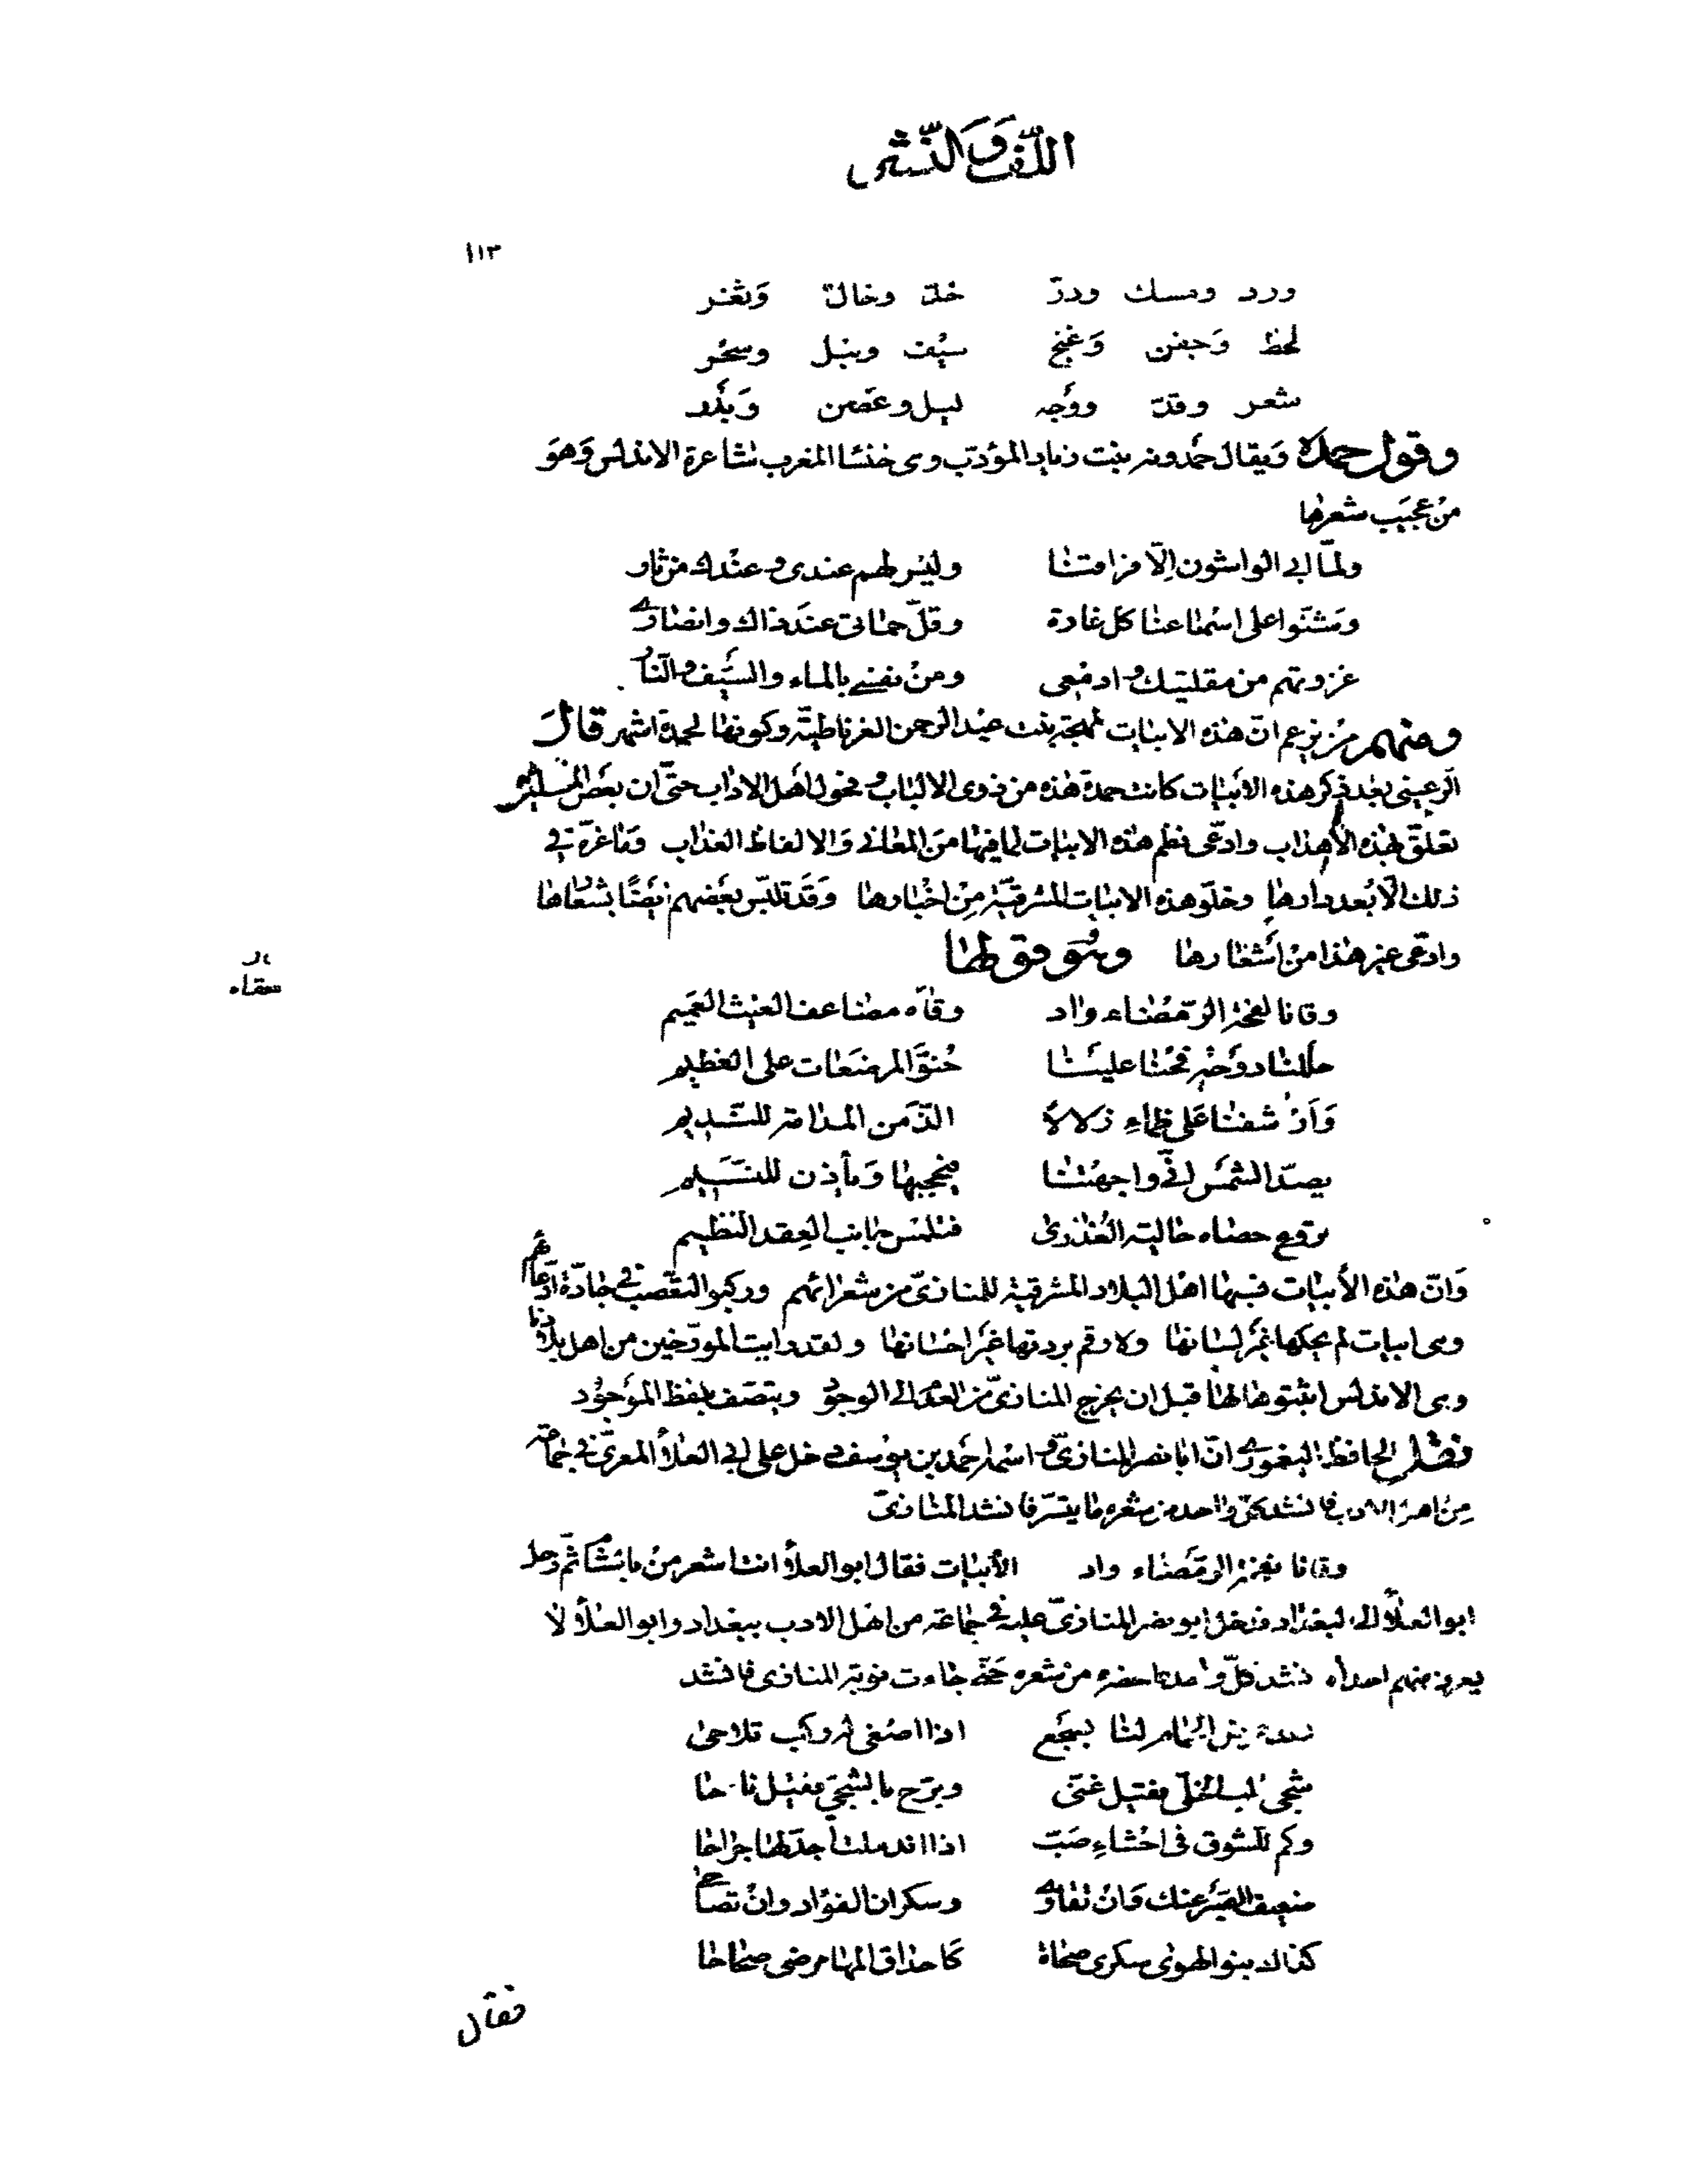 اللّف وَالنّشر
١١٣
ورد ومسك ودرّ خدّ وخال وَثغر
لحظ وَجفن وَغنج سيْف ونبل وسحْر
شعر وقدّ ووَجه ليل وغصن وَبَدر
وقول حمدة وَيقال حَمدونه بنت زياد المؤدّب وهى خنسا المغرب شاعرة الاندلس وَهوَ
منْ عجيَب شعرها
ولمّا ابى الواشون اِلّا فراقنا وليْس لهم عندى وعنْدك من ثار
وشنّوا على اسْماعنا كل غارة وقلّ حماتى عندَ ذاك وانصارى
غزوتهم من مقلتيك وادمْعى ومنْ نفسى بالماء والسَّيف والنّار
ومنهم منْ يزعم انّ هذه الابيات لمهجة بنت عبْد الرحمن الغرناطيّة وكونها لحمدة اشهر قالَ
الرّعينى بعْد ذكر هذه الأبيات كانت حمدة هذه من ذوى الالباب وفحول اَهل الاداب حتّى ان بعَض المنتسلين
تعلّق بهذه الأهداب وادّعى نظم هذه الابيات لما فيها منَ المعانى وَالالفاظ العذاب وَما غرّه فى
ذلك الّا بُعد دارها وخلوّ هذه الابيات المشرقيّة مِنْ اخْبارها وَقَد تلبّس بعَضهم ايَضًا بشعَارها
وادّعى غير هذا منْ أشْعارها وهُوَ قولها
سقاه
وقانا لفحة الرّمْضاء واد وقاه مضاعف الغيث العَميم
حلَلنا دوَحه فحْنا عليَنا حُنوَّ المرضعَات على الفطيم
وَاَرْشفنا عَلى ظماءِ زلالاً الذّ من المدامة للنّديم
يصدّ الشمْس انّى واجهتْنا فيحجبها وَيأذن للنسَيم
يروع حصاه حالية العُذارى فتلمس جانب العِقد النّظيم
وَانّ هذه الأبيات نسبها اهْل البلاد المشرقية للمنازىّ من شعرائهم وركبوا التعصّب فى جادّة ادّعائهم
وهى ابيات لم يحكها غيَر لسانها ولا رقم بردتها غيَر احْسانها ولقد رايت المورّخين من اهل بلادنا
وهى الاندلس اثبتوها لها قبل ان يخرج المنازىّ من العدم الى الوجود ويتصَف بلفظ الموَجوُد
نقل الحافظ اليغمورى انّ ابا نصر المنازىّ واسْمه احَمد بن يوُسف دخل على ابى العَلاَ المعرىّ فى جماعة
مِنْ اهل الادب فانشد كلّ واحد من شعره ما يتسّر فانشد المنازىّ
وقانا لفحة الرمَضاء واد الأبيات فقال ابو العلاَ انت اشعر منْ بالشّام ثم رحل
ابو العلاَ الى بغداد فدخل ابو نصر المنازىّ عليه فى جماعة من اهْل الادب ببغداد وابو العَلاَ لا
يعرف منهم احداً فانشد كلّ واحد ما حضره من شعره حَتّى جاءت نوبة المنازى فانشد
الحمام لنا بسَجع اذا اصْغى له ركب تلاحى
شجى قلب الخلىّ فقيل غنّى وبرّح بالشجىّ فقيل ناحا
وكم للشوق فى احْشاءِ صَبّ اذا اندملت اَجدّ لها جراحا
ضعيف الصَبْر عنك وَانْ تقاوى وسكران الفؤاد وانْ تصاحا
كذاك بنو الهوى سكرى صحاة كَاحداق المها مرضى صحاحا
فقال